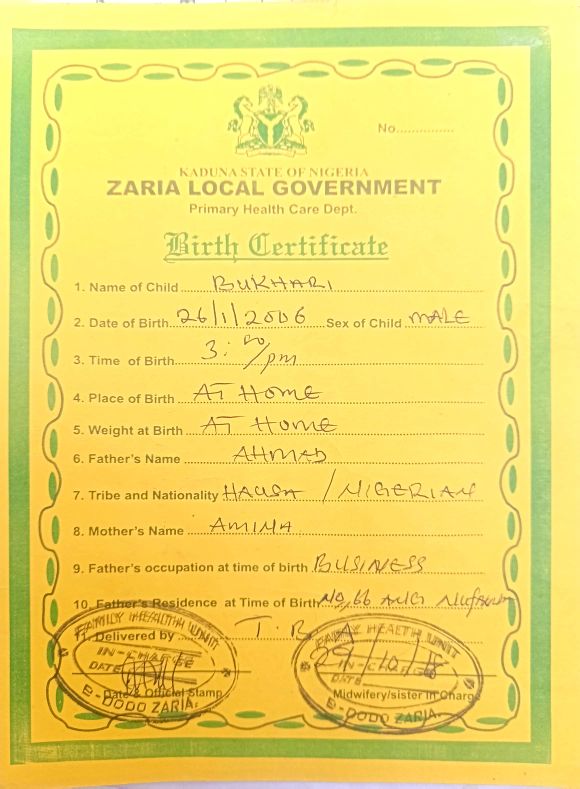 No...............
KADUNA STATE OF NIGERIA
ZARIA LOCAL GOVERNMENT
Primary Health Care Dept.
Birth Certificate
1. Name of Child BUKHARI
2. Date of Birth 26/1/2006 Sex of Child MALE
3. Time of Birth 3:00/pm
4. Place of Birth AT HOME
5. Weight at Birth AT HOME
6. Father's Name AHMAD
7. Tribe and Nationality HAUSA / NIGERIAN
8. Mother's Name AMINA
9. Father's occupation at time of birth BUSINESS
10. Father's Residence at Time of Birth NO, 66 ANG
11. Delivered by T. B. A
FAMILY HEALTH UNIT
IN-CHARGE
DATE
B-DODO ZARIA.
Date & Official Stamp
FAMILY HEALTH UNIT
29/10/
IN-CHARGE
DATE
B-DODO ZARIA.
Midwifery/sister In Charge